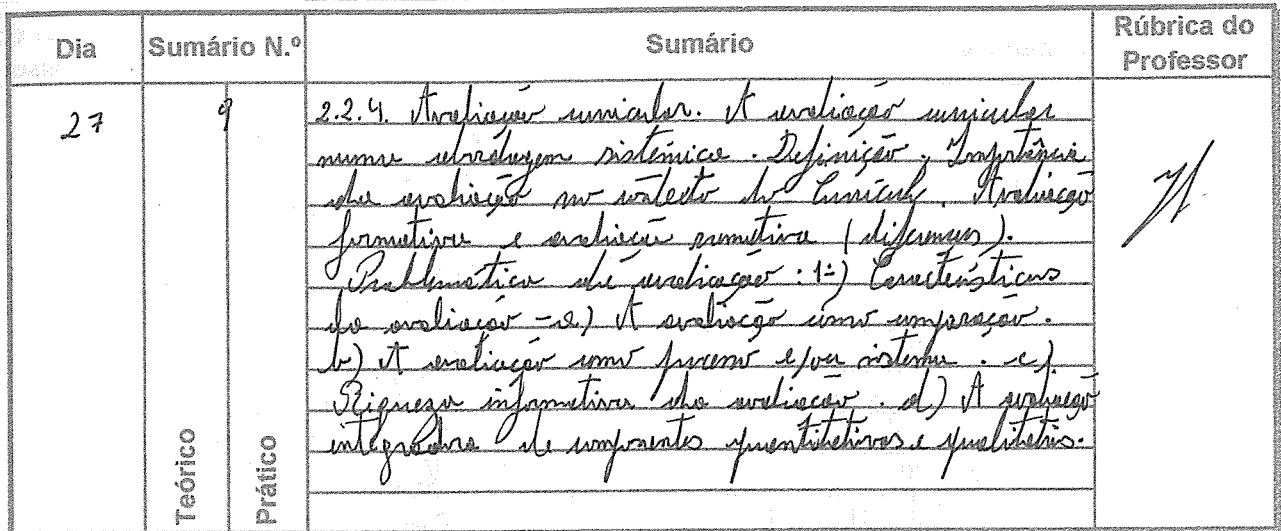 Dia Sumário N.º Sumário Rúbrica do Professor
27 9 2.2.4. Avaliação curricular. A avaliação curricular
numa abordagem sistémica. Definição. Importância
da avaliação no contexto do Currículo. Avaliação
formativa e avaliação sumativa (diferenças).
Problemática da avaliação: 1º) Características
da avaliação - a) A avaliação como comparação.
b) A avaliação como processo e/ou sistema. c)
Riqueza informativa da avaliação. d) A avaliação
integradora de componentes quantitativos e qualitativos.
Teórico Prático